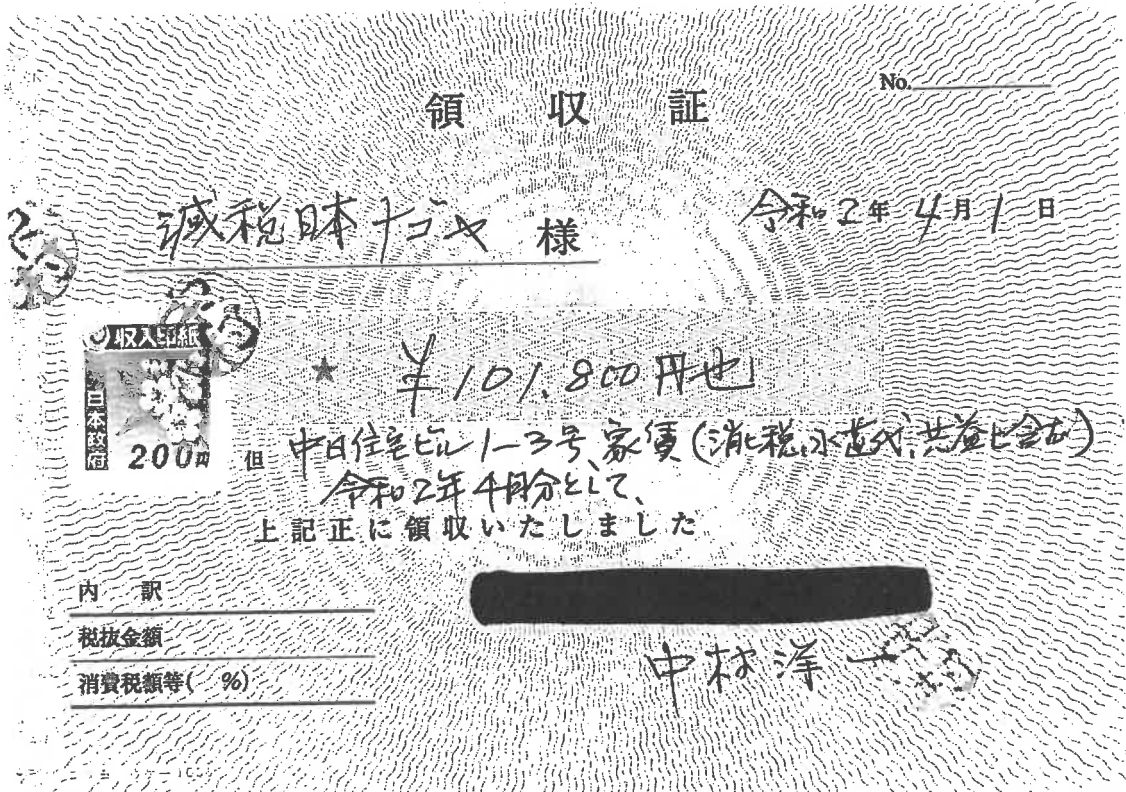 No.
領収証
減税日本ナゴヤ 様
令和2年4月1日
収入印紙
日本政府
200円
★ ¥101.800円也
但 中日住宅ビル1-3号、家賃(消ヒ税、水道代、共益ヒ含む)
令和2年4月分として、
上記正に領収いたしました
内 訳
税抜金額
消費税額等( %)
中村洋一